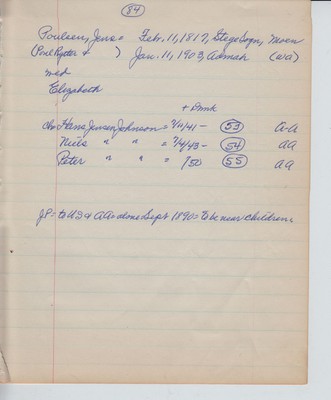 84
Poulsen, Jens = Febr. 11, 1817, Stege Sogn, Moen
(Poul Rytter + ) Jan. 11, 1903, Admah (wa)
mad
Elizabeth
+ Dmk
ch: Hans Jensen Johnson = 2/11/41 - 53 a-A
Niels " " = 7/4/43 - 54 AA
Peter " " = /50 55 AA
JP = to USA A As alone Sept 1890s to be near children.